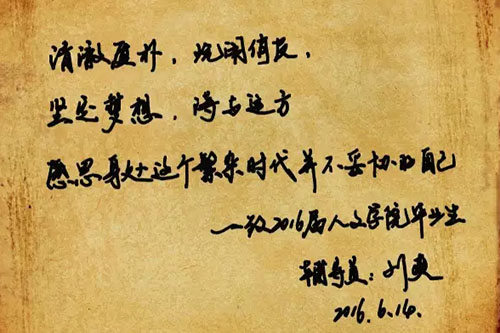 清澈质朴，沉闲倚友，
坚定梦想，诗与远方
感恩身处这个繁杂时代并不妥协的自己
—致2016届人文学院毕业生
辅导员：刘爽
2016.6.14.